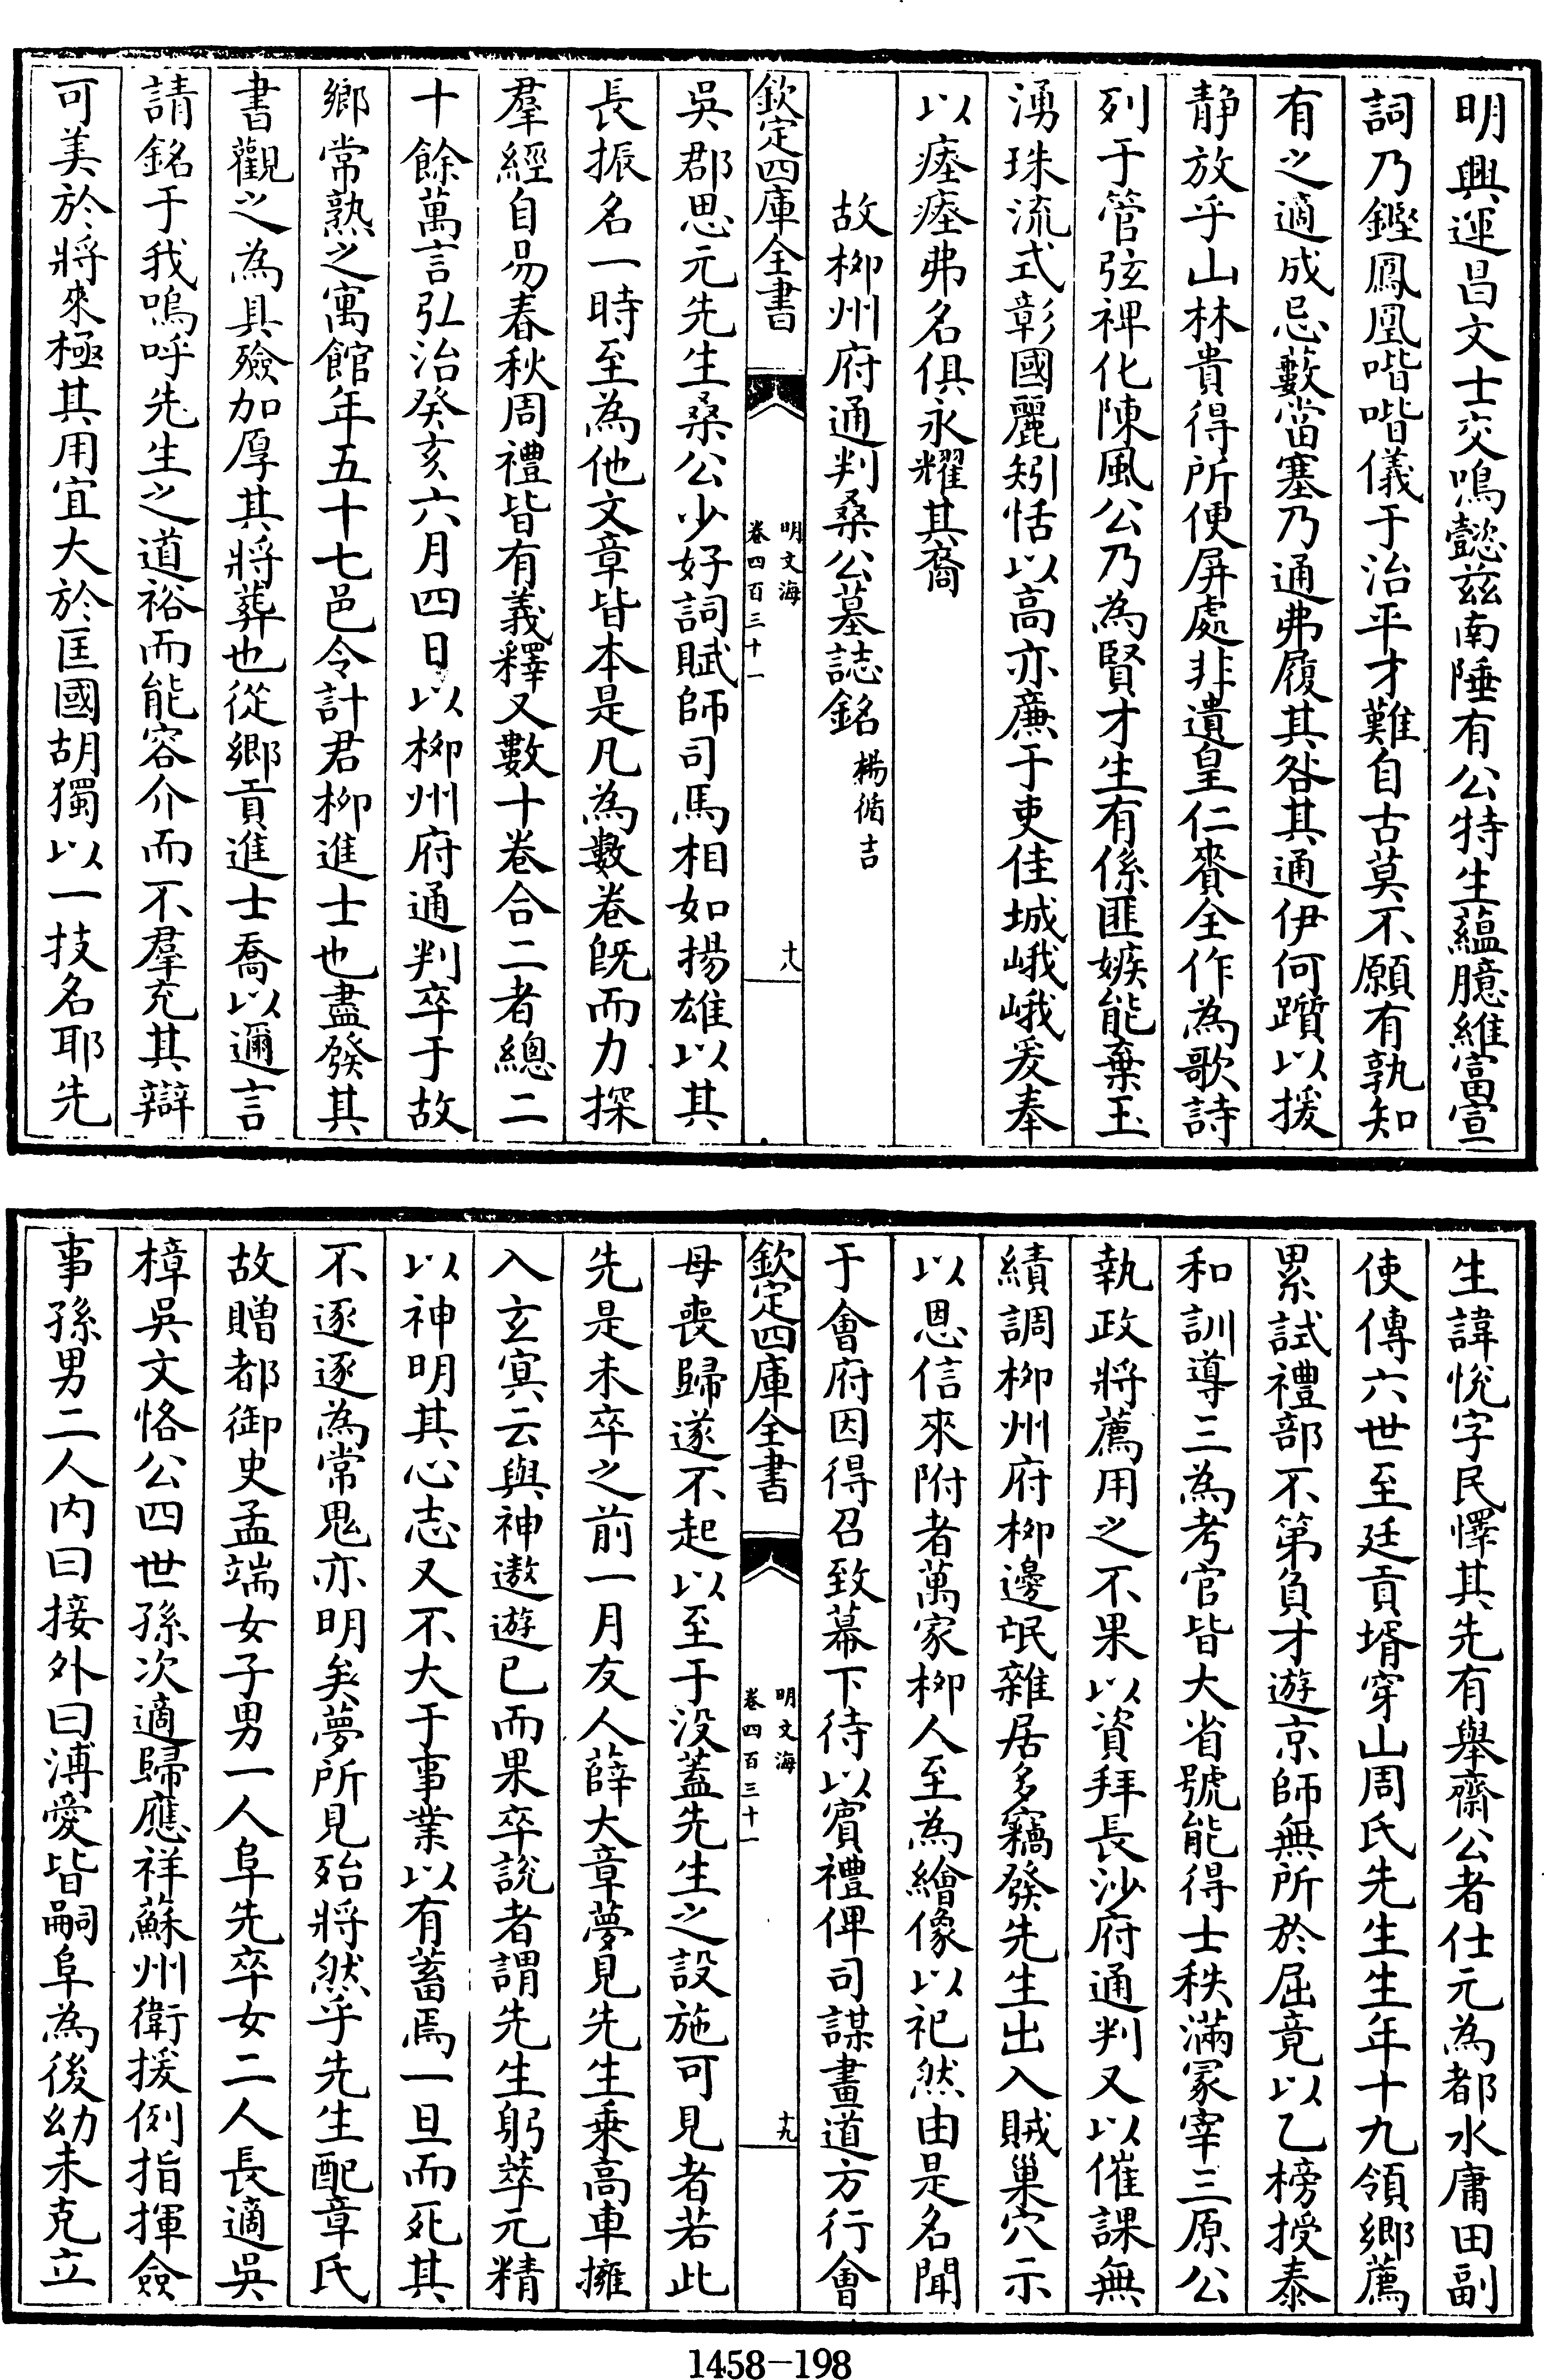 明興運昌文士交鳴懿兹南陲有公特生蘊臆維富宣
詞乃鏗鳳凰喈喈儀于治平才難自古莫不願有孰知
有之適成忌藪當塞乃通弗履其咎其通伊何躓以援
静放乎山林貴得所便屏處非遺皇仁賚全作為歌詩
列于管弦裨化陳風公乃為賢才生有係匪嫉能棄玉
湧珠流式彰國麗矧恬以高亦亷于吏佳城峨峨爰奉
以瘞瘞弗名俱永耀其裔
故栁州府通判桑公墓誌銘 楊循吉
欽定四庫全書
明文海
卷四百三十一
十八
吳郡思元先生桑公少好詞賦師司馬相如揚雄以其
長振名一時至為他文章皆本是凡為數卷旣而力探
羣經自易春秋周禮皆有義釋又數十卷合二者總二
十餘萬言弘治癸亥六月四日以栁州府通判卒于故
鄉常熟之寓館年五十七邑令計君栁進士也盡發其
書觀之為具殮加厚其將葬也從鄉貢進士喬以邇言
請銘于我嗚呼先生之道裕而能容介而不羣充其辯
可美於將來極其用宜大於匡國胡獨以一技名耶先
生諱悅字民懌其先有舉齋公者仕元為都水庸田副
使傳六世至廷貢壻穿山周氏先生生年十九領鄉薦
累試禮部不第負才遊京師無所於屈竟以乙榜授泰
和訓導三為考官皆大省號能得士秩滿冡宰三原公
執政將薦用之不果以資拜長沙府通判又以催課無
績調栁州府栁邊氓雜居多竊發先生出入賊巢穴示
以恩信來附者萬家栁人至為繪像以祀然由是名聞
于會府因得召致幕下待以賓禮俾司謀畫道方行會
欽定四庫全書
明文海
卷四百三十一
十九
母喪歸遂不起以至于沒蓋先生之設施可見者若此
先是未卒之前一月友人薛大章夢見先生乗高車擁
入玄冥云與神遨遊已而果卒說者謂先生躬萃元精
以神明其心志又不大于事業以有蓄焉一旦而死其
不逐逐為常鬼亦明矣夢所見殆將然乎先生配章氏
故贈都御史孟端女子男一人阜先卒女二人長適吳
樟吳文恪公四世孫次適歸應祥蘇州衛援例指揮僉
事孫男二人内曰接外曰溥愛皆嗣阜為後幼未克立
1458-198